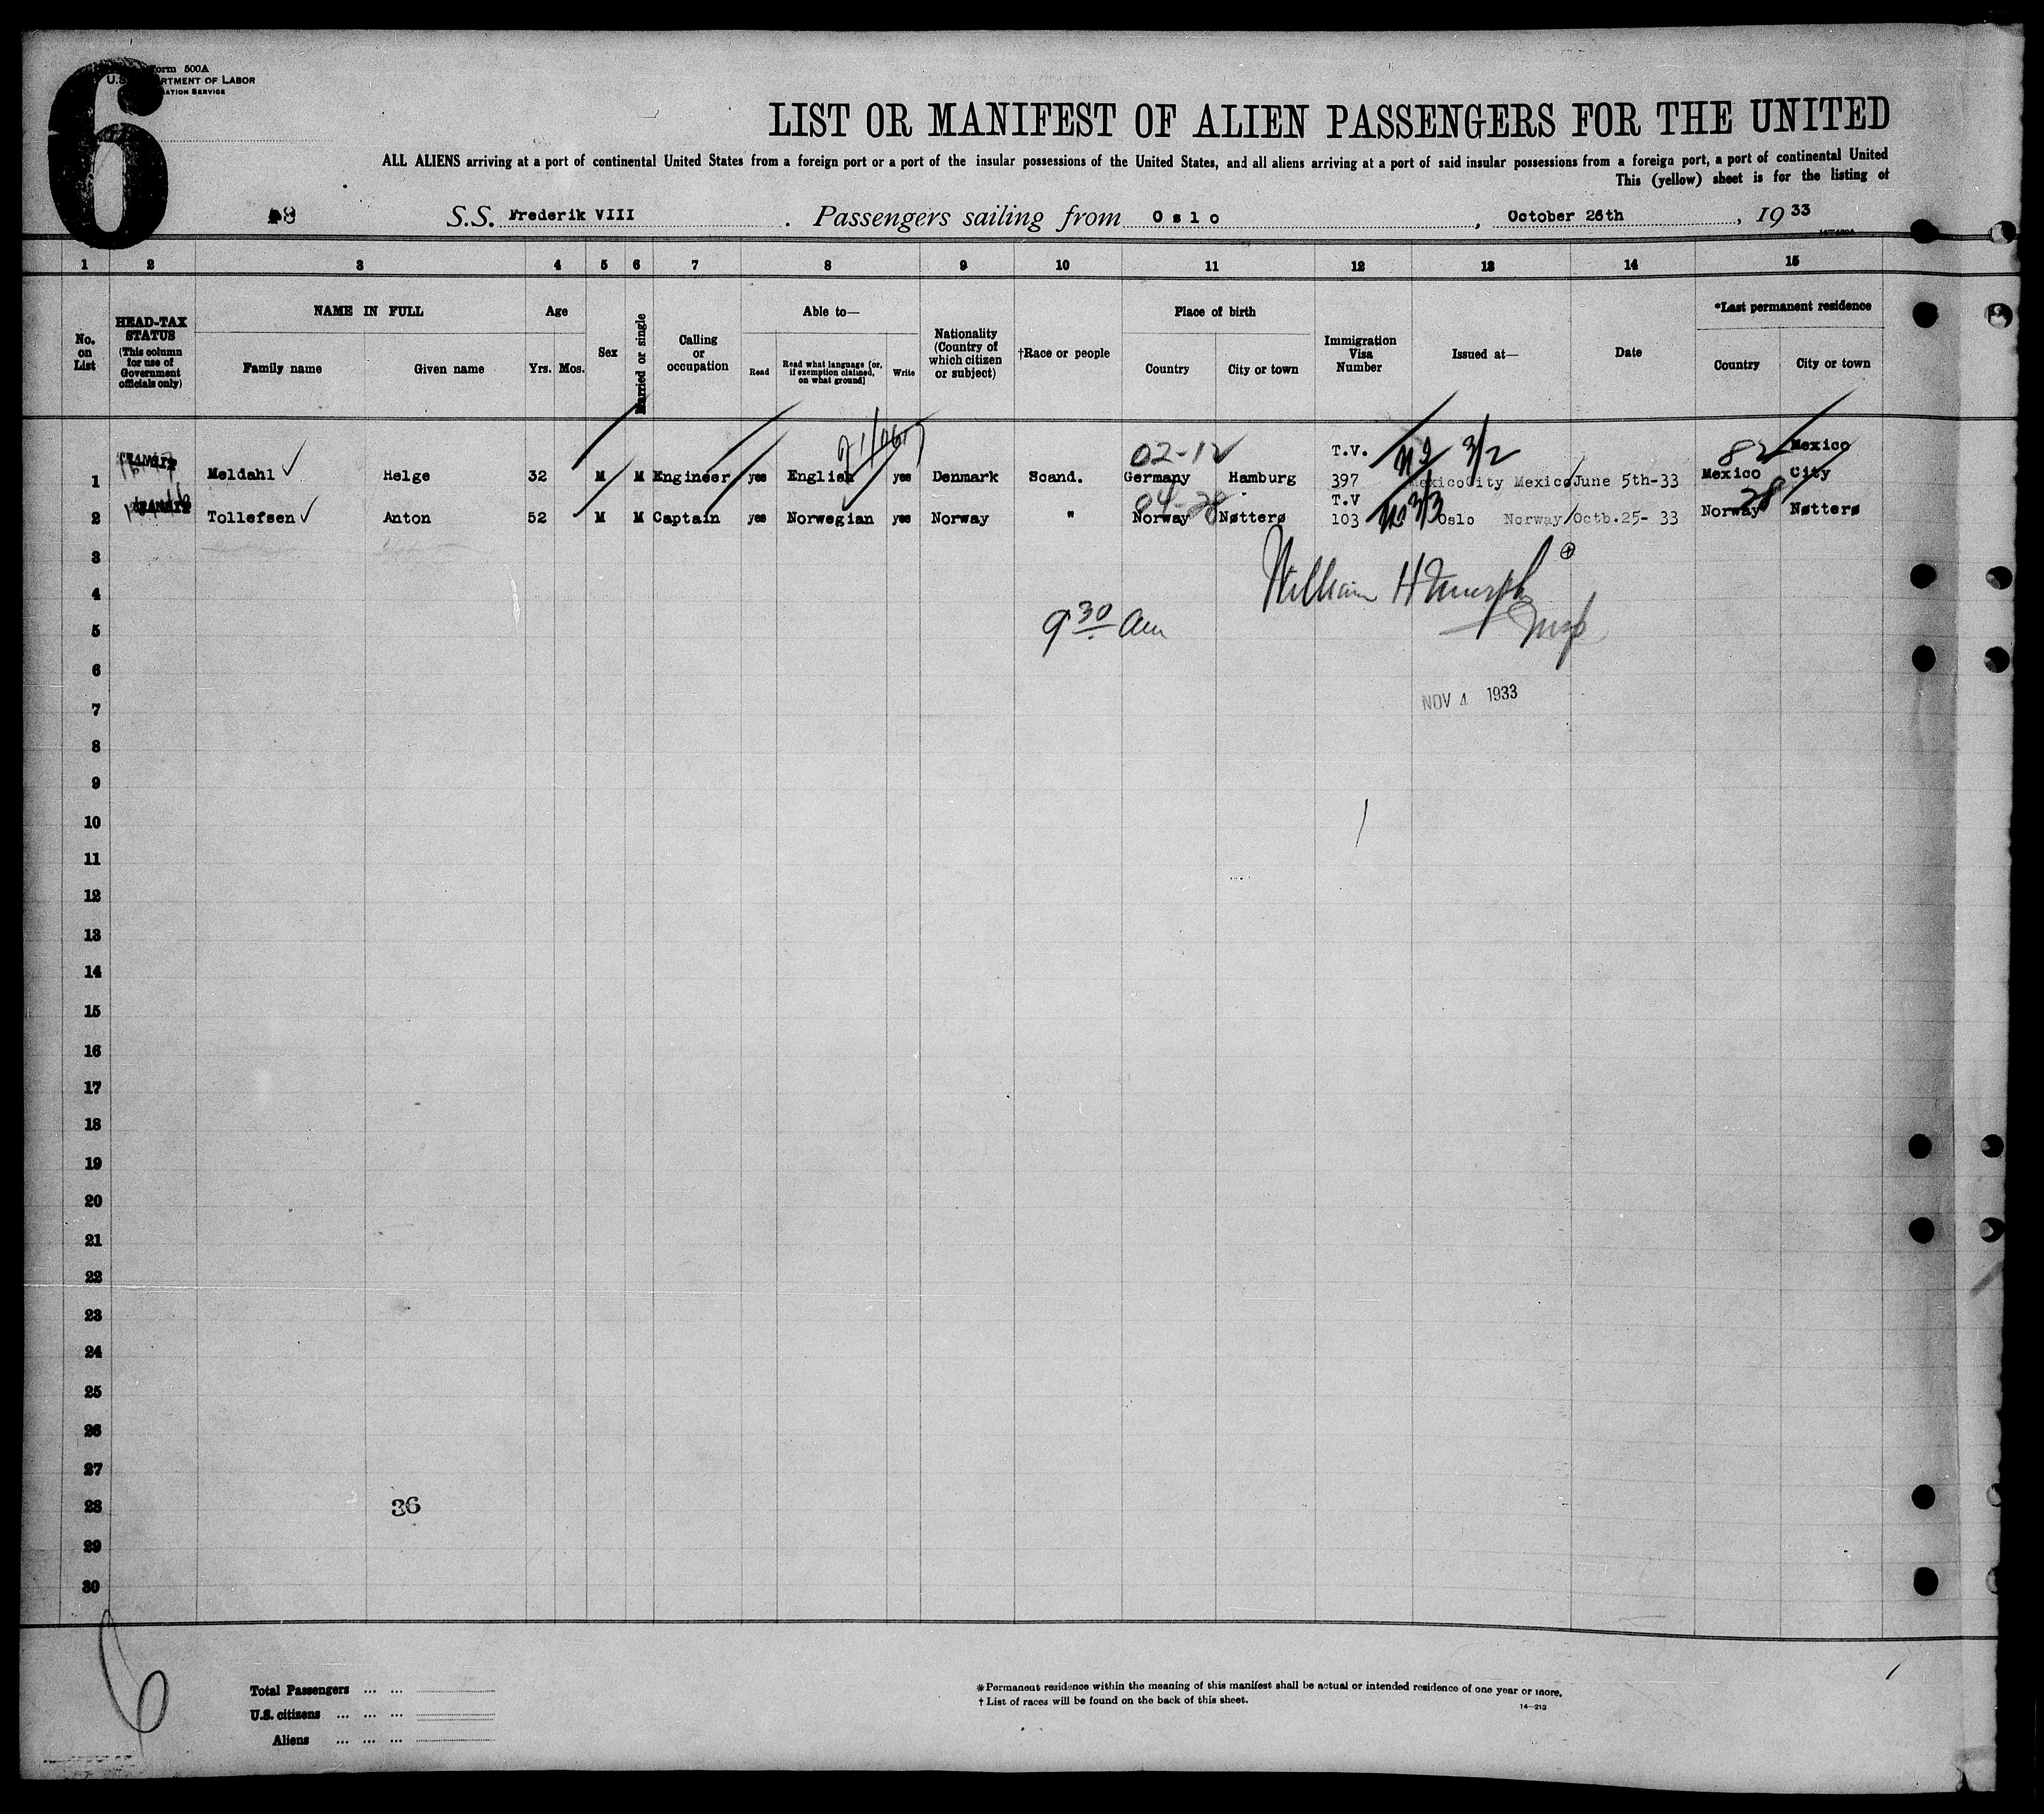 6
Form 500A
U.S. DEPARTMENT OF LABOR
IMMIGRATION SERVICE
LIST OR MANIFEST OF ALIEN PASSENGERS FOR THE UNITED
ALL ALIENS arriving at a port of continental United States from a foreign port or a port of the insular possessions of the United States, and all aliens arriving at a port of said insular possessions from a foreign port, a port of continental United
This (yellow) sheet is for the listing of
S.S. Frederik VIII. Passengers sailing from Oslo, October 26th, 1933
1 2 3 4 5 6 7 8 9 10 11 12 13 14 15
No. on List
HEAD-TAX STATUS (This column for use of Government officials only)
NAME IN FULL Family name Given name
Age Yrs. Mos.
Sex
Married or single
Calling or occupation
Able to— Read Read what language [or, if exemption claimed, on what ground] Write
Nationality (Country of which citizen or subject)
†Race or people
Place of birth Country City or town
Immigration Visa Number
Issued at—
Date
*Last permanent residence Country City or town
02-12 3/2 82
1 TRANSIT Meldahl Helge 32 M M Engineer yes English yes Denmark Scand. Germany Hamburg T.V. 397 Mexico City Mexico June 5th-33 Mexico Mexico City
04-28 3/3 28
2 TRANSIT Tollefsen Anton 52 M M Captain yes Norwegian yes Norway " Norway Nøtterø T.V 103 Oslo Norway Octb.25- 33 Norway Nøtterø
3
William H Murphy
4
9 30 am
5
Insp
6
NOV 4 1933
7
8
9
10
11
12
13
14
15
16
17
18
19
20
21
22
23
24
25
26
27
28 36
29
30
6
Total Passengers ... ...
U.S. citizens ... ... ...
Aliens ... ... ...
*Permanent residence within the meaning of this manifest shall be actual or intended residence of one year or more.
†List of races will be found on the back of this sheet.
14—213